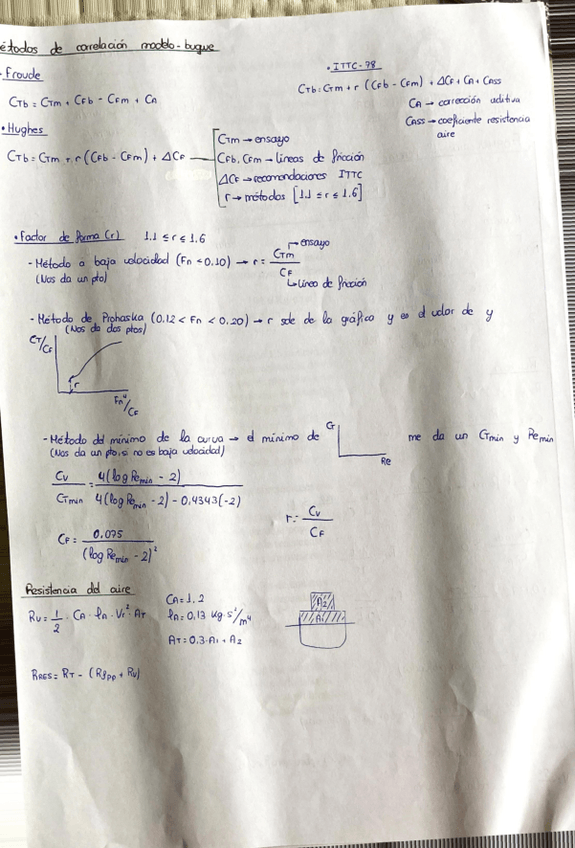 étodos de correlación modelo-buque
- Froude
CTb = CTm + CFb - CFm + CA
• ITTC-78
CTb = CTm + r (CFb - CFm) + ΔCF + CA + CASS
CA → corrección aditiva
CASS → coeficiente resistencia
aire
• Hughes
CTb = CTm + r (CFb - CFm) + ΔCF
CTm → ensayo
CFb, CFm → líneas de fricción
ΔCF → recomendaciones ITTC
r → métodos [1.1 ≤ r ≤ 1.6]
• Factor de forma (r) 1.1 ≤ r ≤ 1.6
- Método a baja velocidad (Fn < 0.10) → r = CTm / CF
ensayo
Línea de fricción
(Nos da un pto)
- Método de Prohaska (0.12 < Fn < 0.20) → r sale de la gráfica y es el valor de y
(Nos da dos ptos)
CT/CF
r
Fn⁴/CF
- Método del mínimo de la curva → el mínimo de CT Re me da un CTmin y Remin
(Nos da un pto, si no es baja velocidad)
Cv / CTmin = 4(log Remin - 2) / 4(log Remin - 2) - 0.4343(-2)
r = Cv / CF
CF = 0.075 / (log Remin - 2)²
Resistencia del aire
Rv = 1/2 · CA · ρA · Vr² AT
CA = 1,2
ρA = 0,13 kg·s²/m⁴
AT = 0.3·A1 + A2
A2
A1
RRES = RT - (Rapp + Rv)